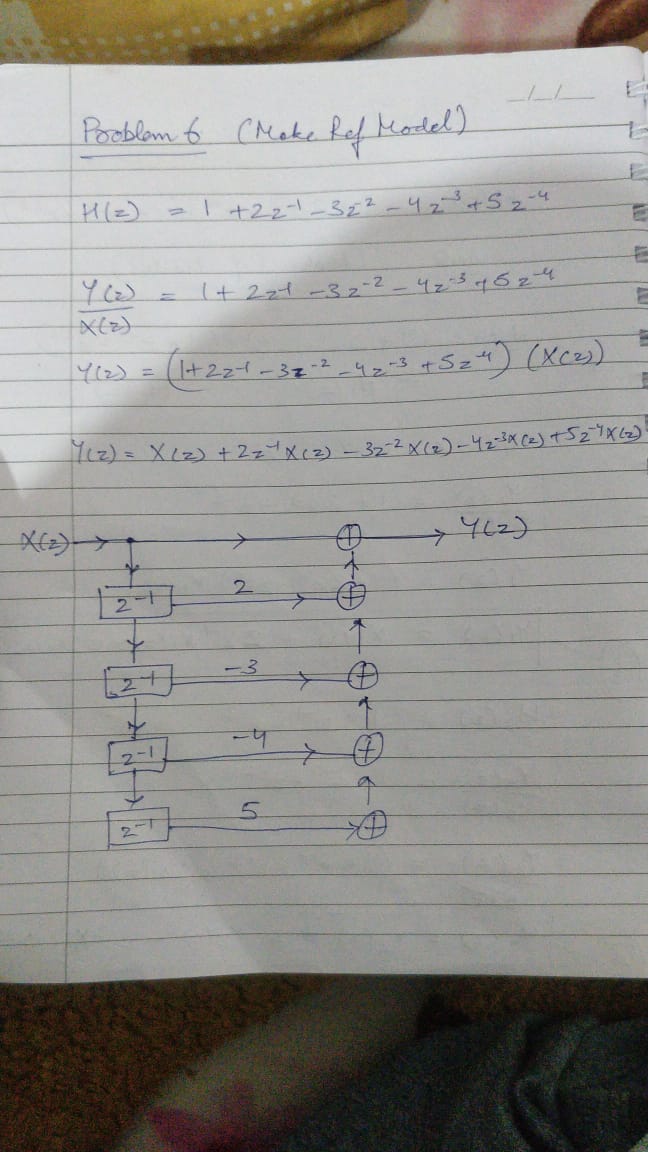 __/__/____
Problem 6 (Make Ref Model)
H(z) = 1 + 2z⁻¹ - 3z⁻² - 4z⁻³ + 5z⁻⁴
Y(z)/X(z) = 1 + 2z⁻¹ - 3z⁻² - 4z⁻³ + 5z⁻⁴
Y(z) = (1 + 2z⁻¹ - 3z⁻² - 4z⁻³ + 5z⁻⁴) (X(z))
Y(z) = X(z) + 2z⁻¹X(z) - 3z⁻²X(z) - 4z⁻³X(z) + 5z⁻⁴X(z)
X(z) + Y(z)
z⁻¹ 2 +
z⁻¹ -3 +
z⁻¹ -4 +
z⁻¹ 5 +